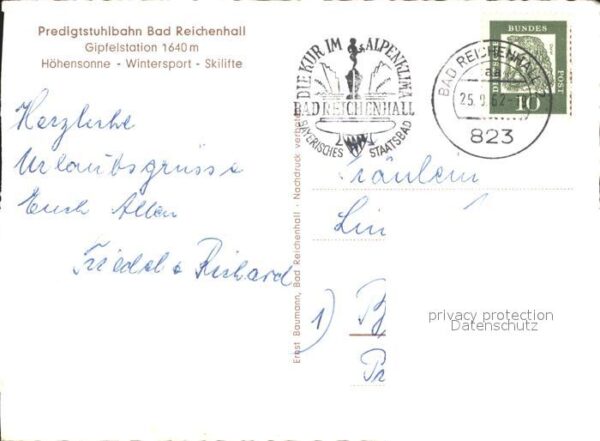 Predigtstuhlbahn Bad Reichenhall
Gipfelstation 1640 m
Höhensonne - Wintersport - Skilifte
Herzliche
Urlaubsgrüsse
Euch Allen
Friedel & Richard
Ernst Baumann, Bad Reichenhall - Nachdruck verboten
DIE KUR IM ALPENKLIMA
BAD REICHENHALL
BAYERISCHES STAATSBAD
DEUTSCHE BUNDESPOST
10
BAD REICHENHALL
aa
25.9.62
823
Fräulein
Lin
1) B
Pr
privacy protection
Datenschutz